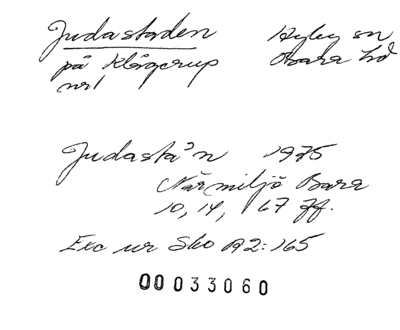 Judastaden Hyby sn
på Klågerup Bara hd
nr 1
Judasta'n 1975
Närmiljö Bara
10, 14, 67 ff.
Exc ur Sko A2:165
00033060